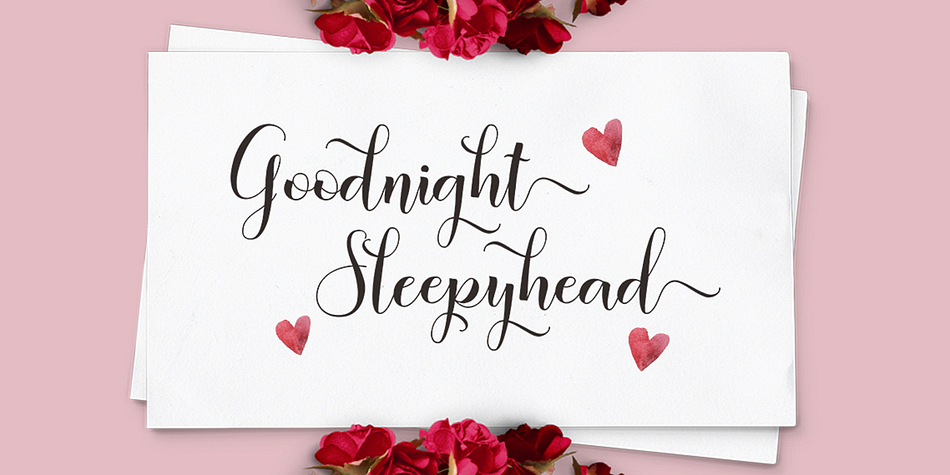 Goodnight
Sleepyhead